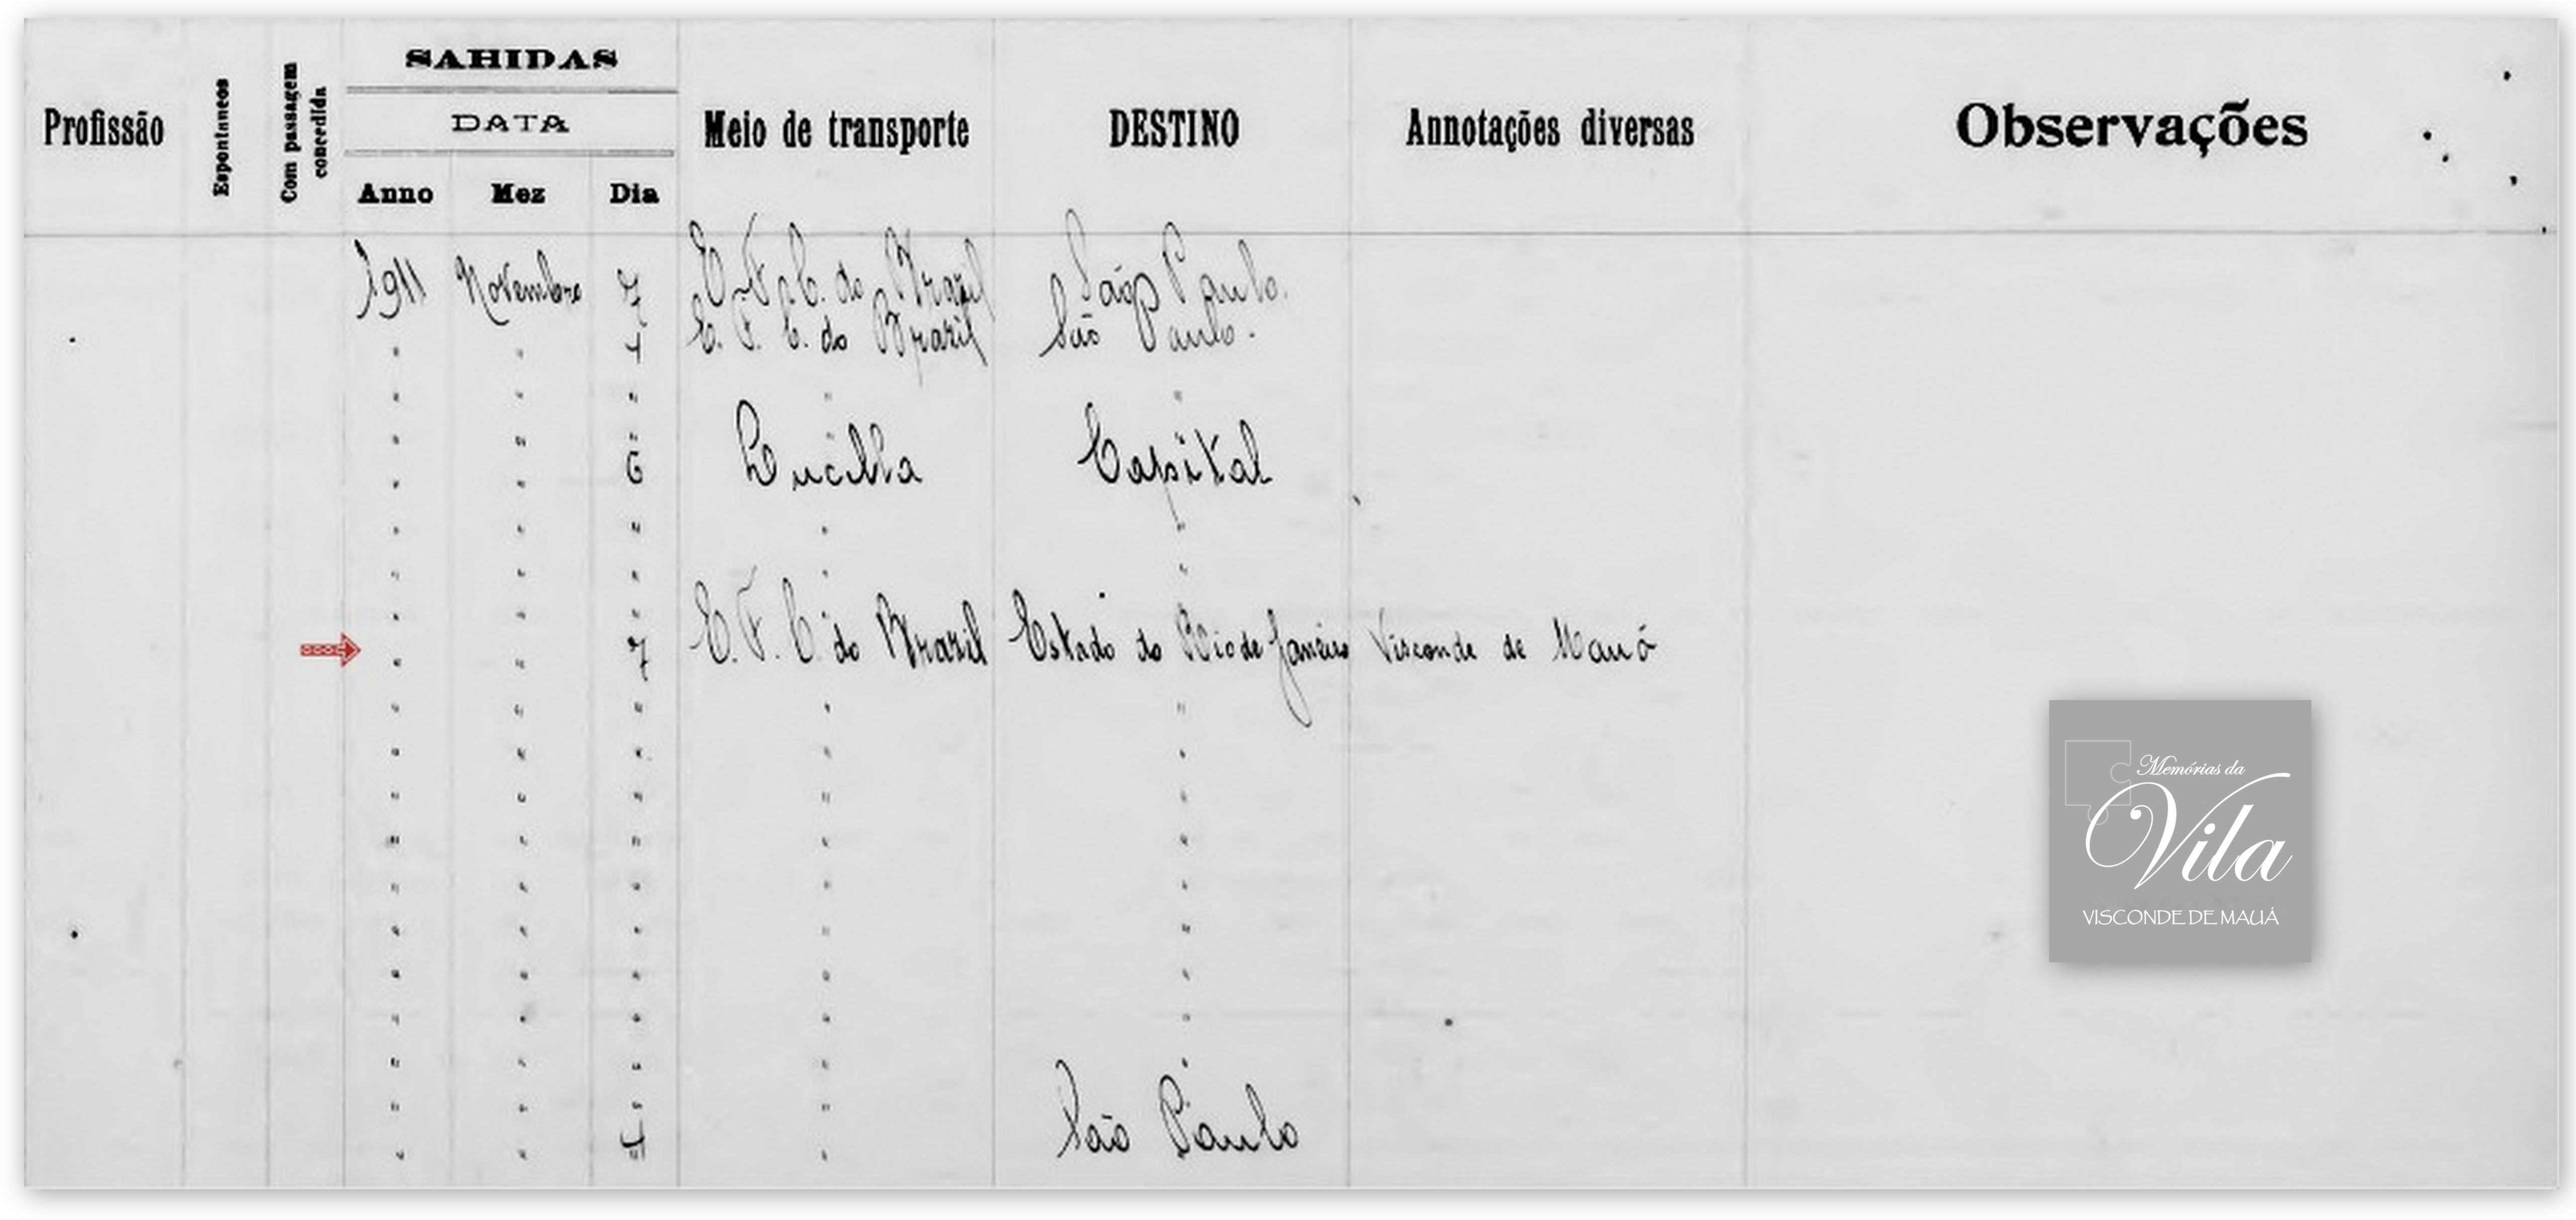 SAHIDAS
DATA
Profissão Espontaneos Com passagem concedida Anno Mez Dia Meio de transporte DESTINO Annotações diversas Observações
1911 Novembro 7 E. F. C. do Brazil São Paulo.
" " 4 E. F. C. do Brazil São Paulo.
" " " " "
" " " " "
" " 6 Capital
" " " " "
" " " " "
" " " "
" " 7 E. F. C. do Brazil Estado do Rio de Janeiro Visconde de Mauá
" " " " "
" " " " "
" " " " "
" " " " "
" " " " "
" " " " "
" " " " "
" " " " "
" " " " "
" " " "
" " 4 " São Paulo
Memórias da
Vila
VISCONDE DE MAUÁ